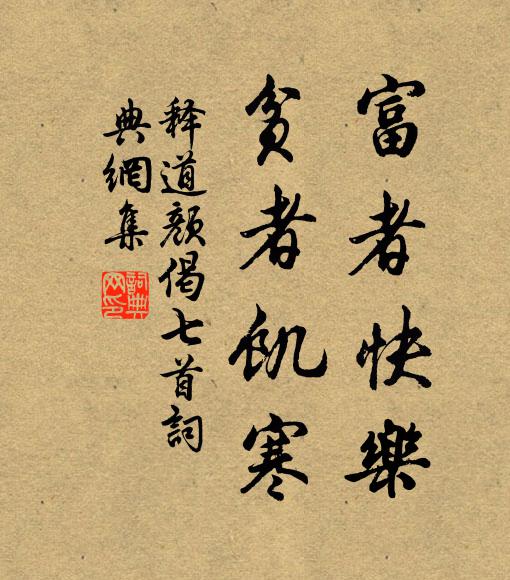 富者快樂
貧者飢寒
释道顏偈七首詞
典網集
詞典
网印